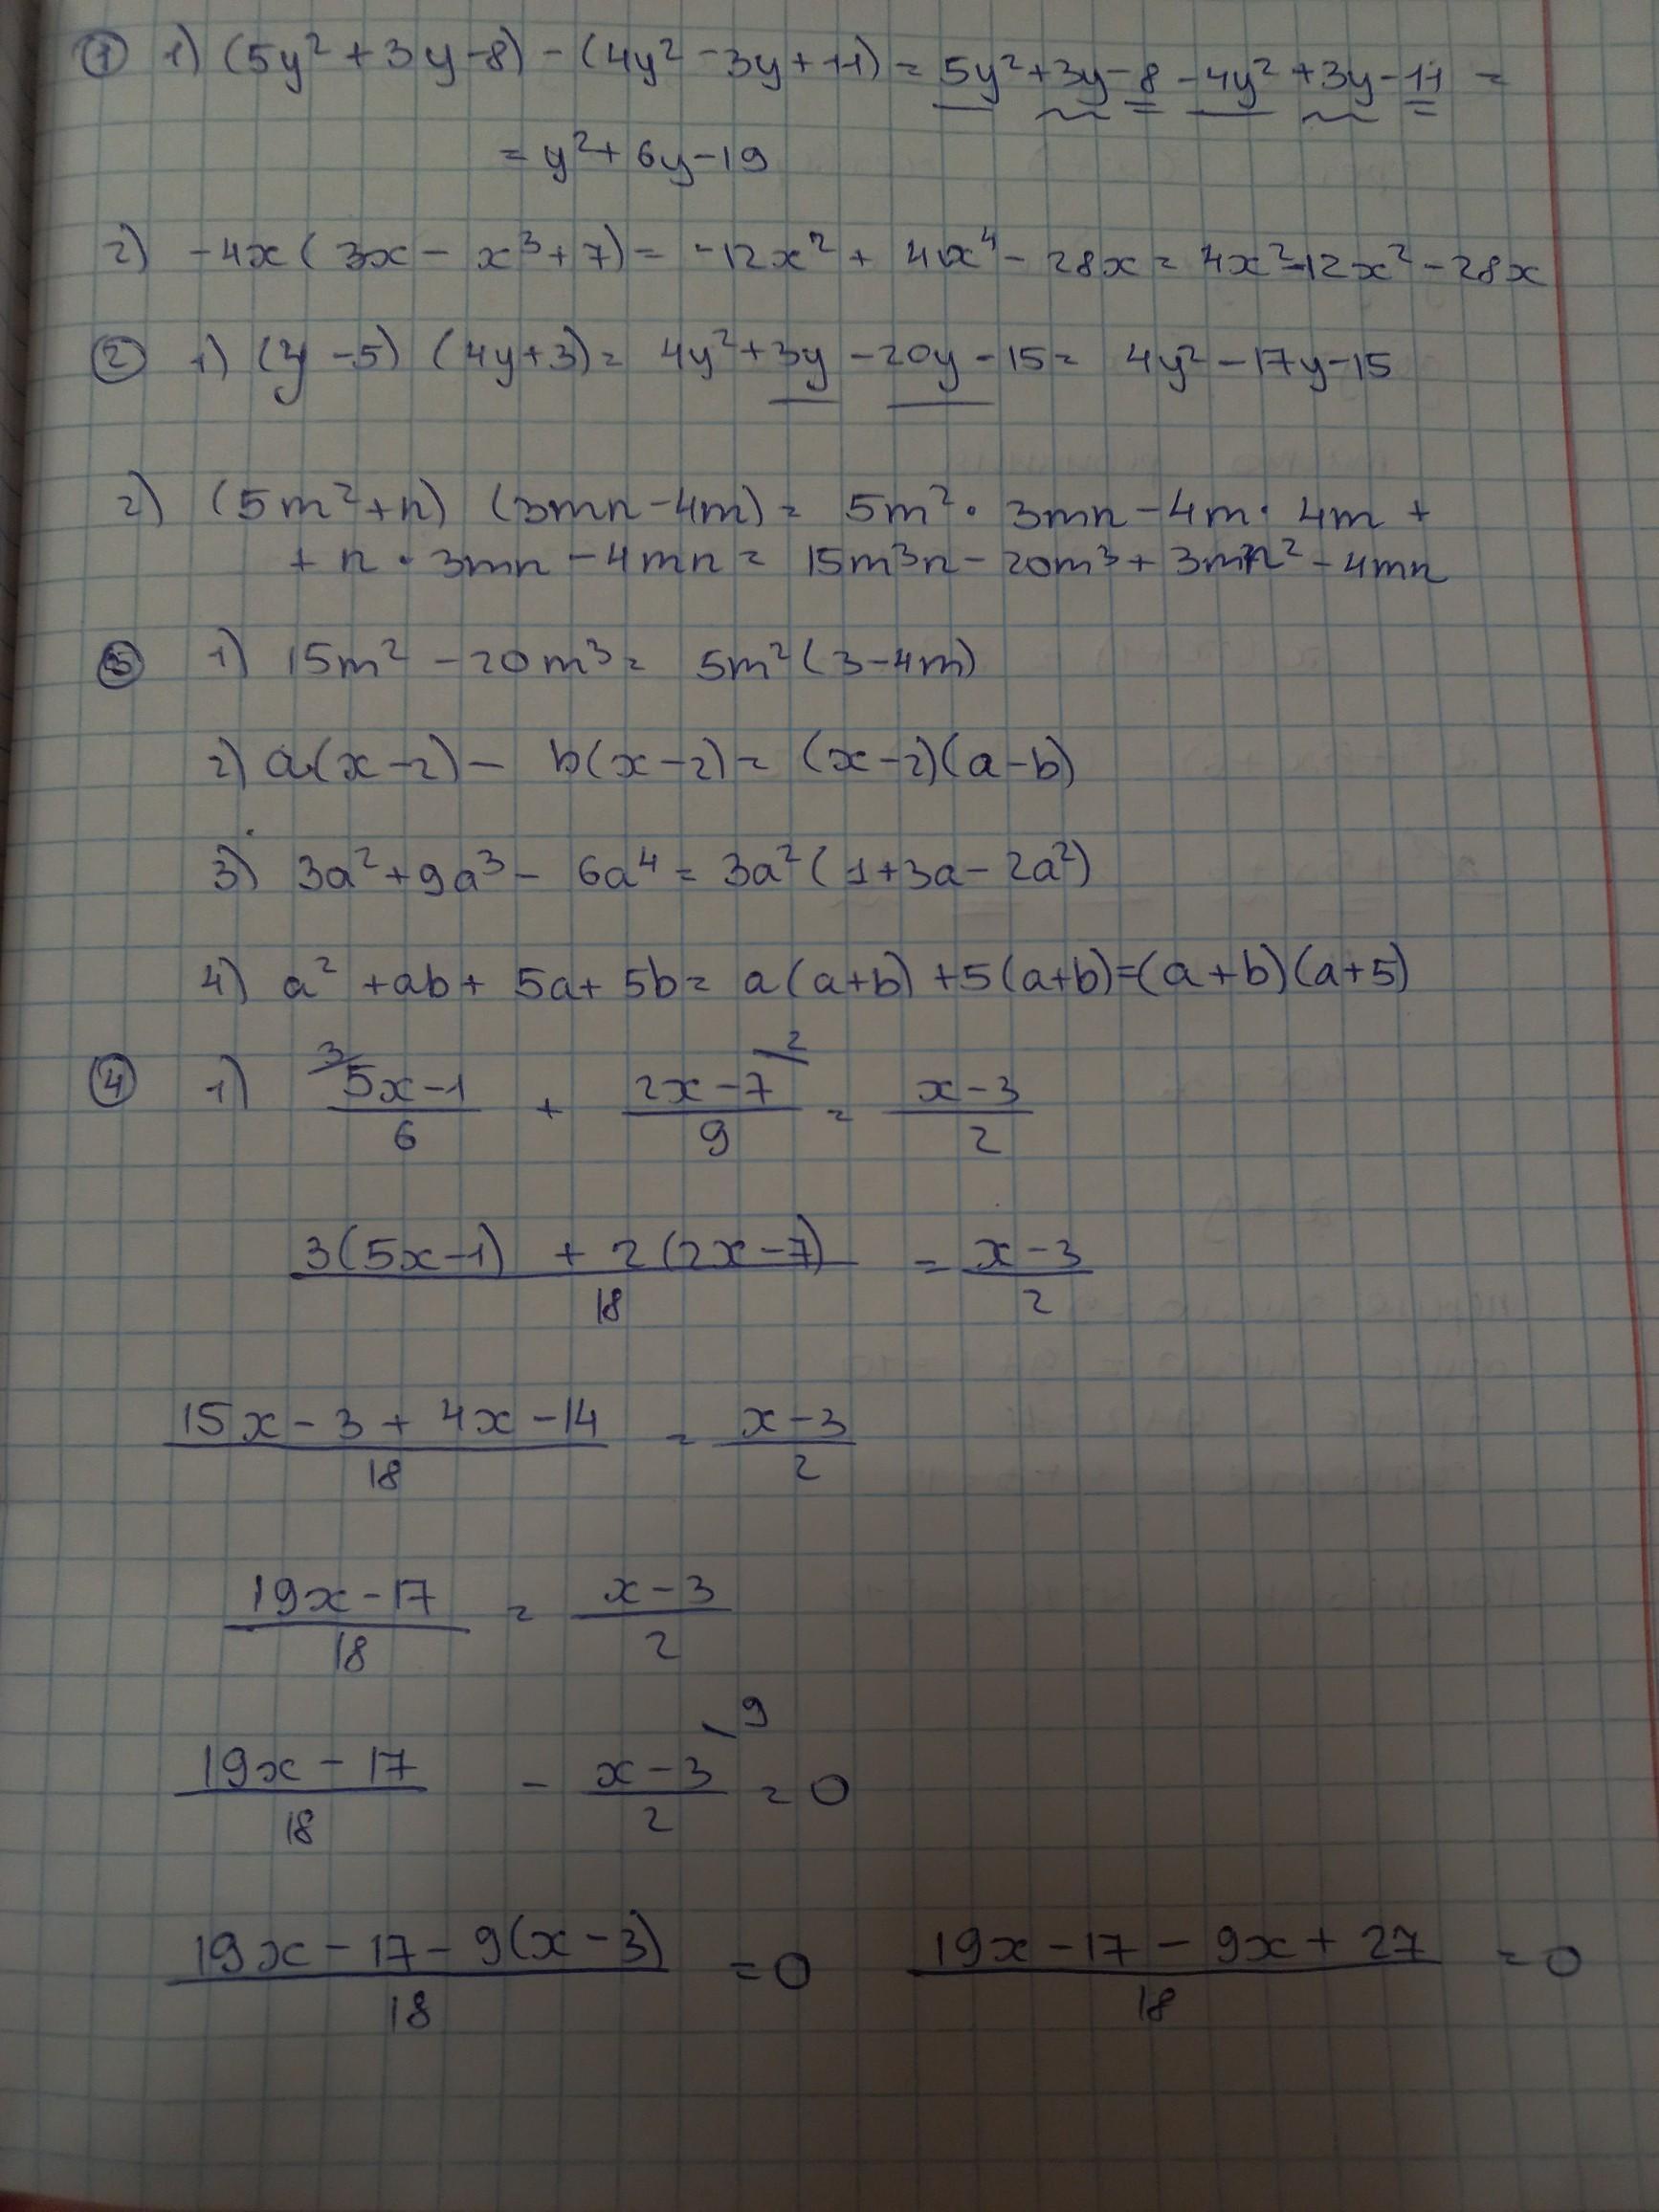 ① 1) (5y² + 3y - 8) - (4y² - 3y + 11) = 5y² + 3y - 8 - 4y² + 3y - 11 =
= y² + 6y - 19
2) -4x (3x - x³ + 7) = -12x² + 4x⁴ - 28x = 4x² - 12x² - 28x
② 1) (y - 5) (4y + 3) = 4y² + 3y - 20y - 15 = 4y² - 17y - 15
2) (5m² + n) (3mn - 4m) = 5m² · 3mn - 4m · 4m +
+ n · 3mn - 4mn = 15m³n - 20m³ + 3mn² - 4mn
③ 1) 15m² - 20m³ = 5m² (3 - 4m)
2) a(x - 2) - b(x - 2) = (x - 2)(a - b)
3) 3a² + 9a³ - 6a⁴ = 3a² (1 + 3a - 2a²)
4) a² + ab + 5a + 5b = a(a + b) + 5(a + b) = (a + b)(a + 5)
3 2
④ 1) 5x - 1 / 6 + 2x - 7 / 9 = x - 3 / 2
3(5x - 1) + 2(2x - 7) / 18 = x - 3 / 2
15x - 3 + 4x - 14 / 18 = x - 3 / 2
19x - 17 / 18 = x - 3 / 2
9
19x - 17 / 18 - x - 3 / 2 = 0
19x - 17 - 9(x - 3) / 18 = 0 19x - 17 - 9x + 27 / 18 = 0